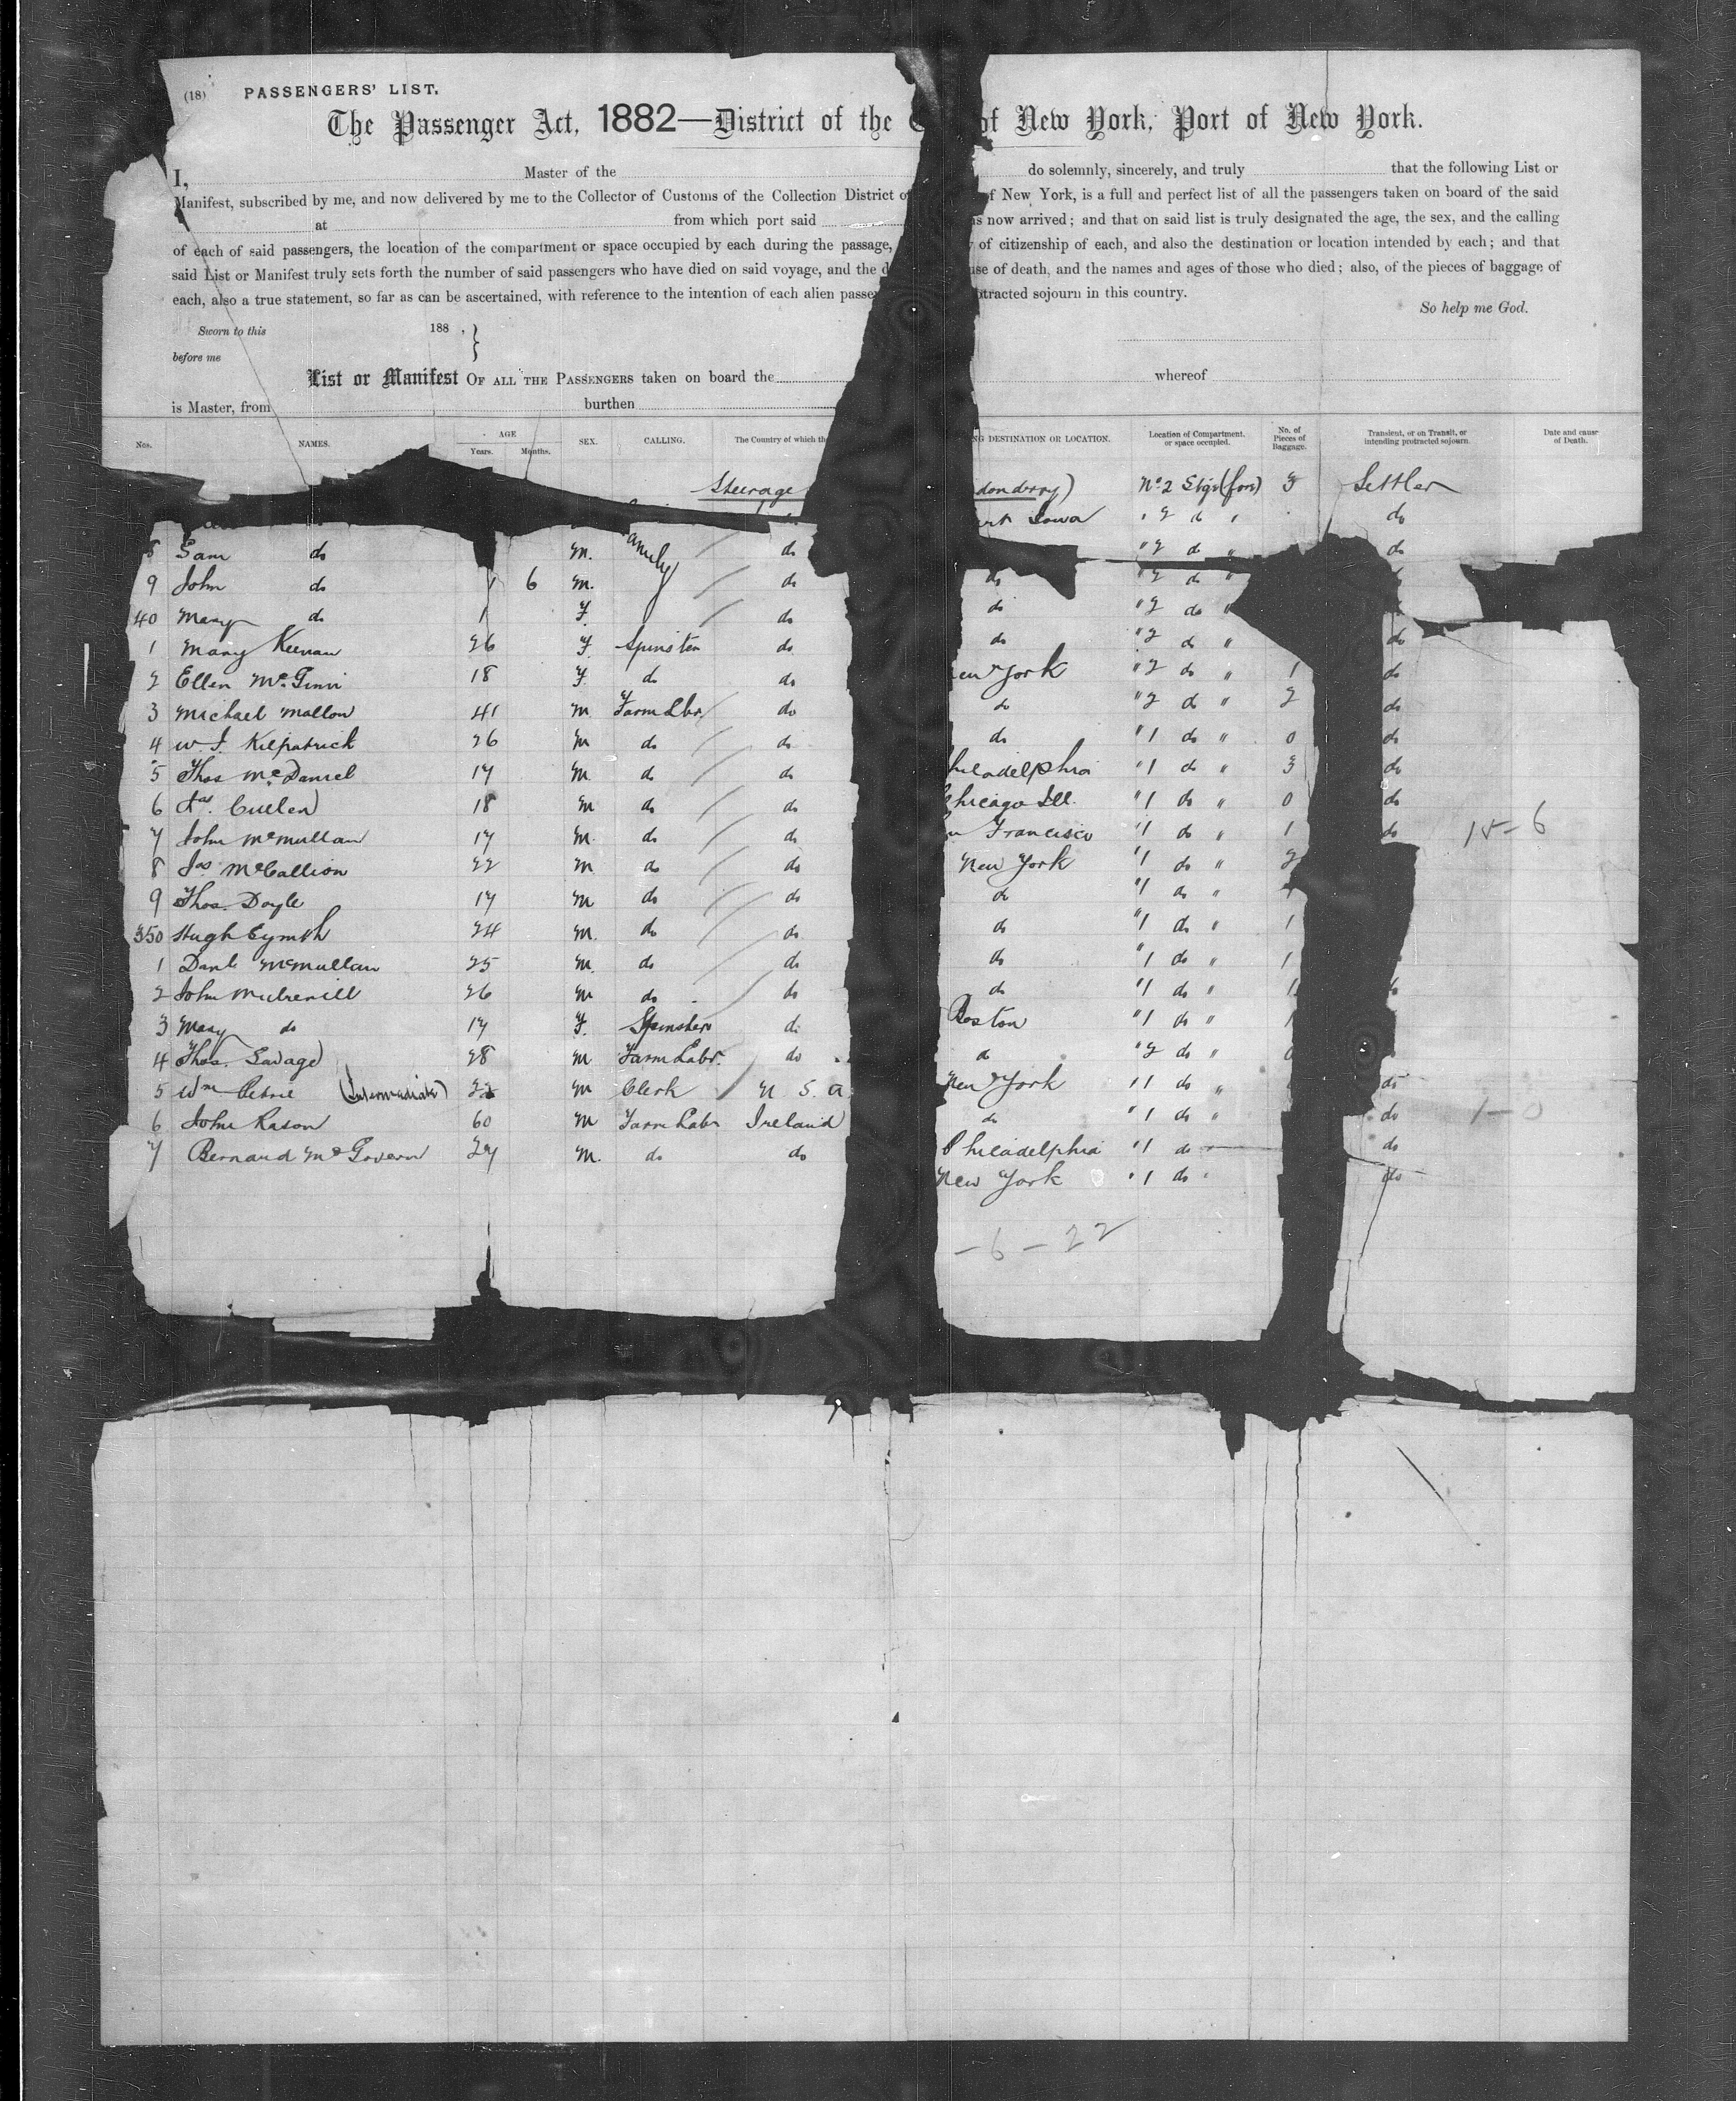 (18) PASSENGERS' LIST.
The Passenger Act, 1882—District of the of New York, Port of New York.
I, Master of the do solemnly, sincerely, and truly that the following List or
Manifest, subscribed by me, and now delivered by me to the Collector of Customs of the Collection District of New York, is a full and perfect list of all the passengers taken on board of the said
at from which port said now arrived; and that on said list is truly designated the age, the sex, and the calling
of each of said passengers, the location of the compartment or space occupied by each during the passage, of citizenship of each, and also the destination or location intended by each; and that
said List or Manifest truly sets forth the number of said passengers who have died on said voyage, and the of death, and the names and ages of those who died; also, of the pieces of baggage of
each, also a true statement, so far as can be ascertained, with reference to the intention of each alien sojourn in this country.
So help me God.
Sworn to this 188 , }
before me
List or Manifest OF ALL THE PASSENGERS taken on board the whereof
is Master, from burthen
Nos. NAMES. AGE Years. Months. SEX. CALLING. The Country of which DESTINATION OR LOCATION. Location of Compartment, or space occupied. No. of Pieces of Baggage. Transient, or on Transit, or intending protracted sojourn. Date and cause of Death.
Steerage No 2 Stge (for) 3 Settler
Iowa " 2 do " do
8 Sam do M. do " 2 do " do
9 John do 1 6 M. do do " 2 do "
40 Mary do 1 F. do do " 2 do "
1 Mary Keenan 26 F Spinster do do " 2 do " do
2 Ellen McGinn 18 F. do do New York " 2 do " 1 do
3 Michael Mallon 41 M Farm Lbr do do " 2 do " 2 do
4 W. J. Kilpatrick 26 M do do do " 1 do " 0 do
5 Thos McDaniel 17 M do do Philadelphia " 1 do " 3 do
6 Jas. Cullen 18 M do do Chicago Ill. " 1 do " 0 do
7 John McMullan 17 M. do do Francisco " 1 do " 1 do 15-6
8 Jas McCallion 22 M do do New York " 1 do " 2
9 Thos. Doyle 17 M do do do " 1 do "
350 Hugh 24 M. do do do " 1 do " 1
1 Danl McMullan 25 M. do do do " 1 do " 1
2 John 26 M do do do " 1 do " 1
3 Mary do 17 F. Spinster do Boston " 1 do "
4 Thos. Savage 28 M Farm Labr. do do " 2 do "
5 Wm (Intermediate) 22 M Clerk U S. A New York " 1 do " do
6 John 60 M Farm Labr Ireland do " 1 do " do 1-0
7 Bernard McGovern 27 M. do do Philadelphia " 1 do do
New York " 1 do " do
-6-22